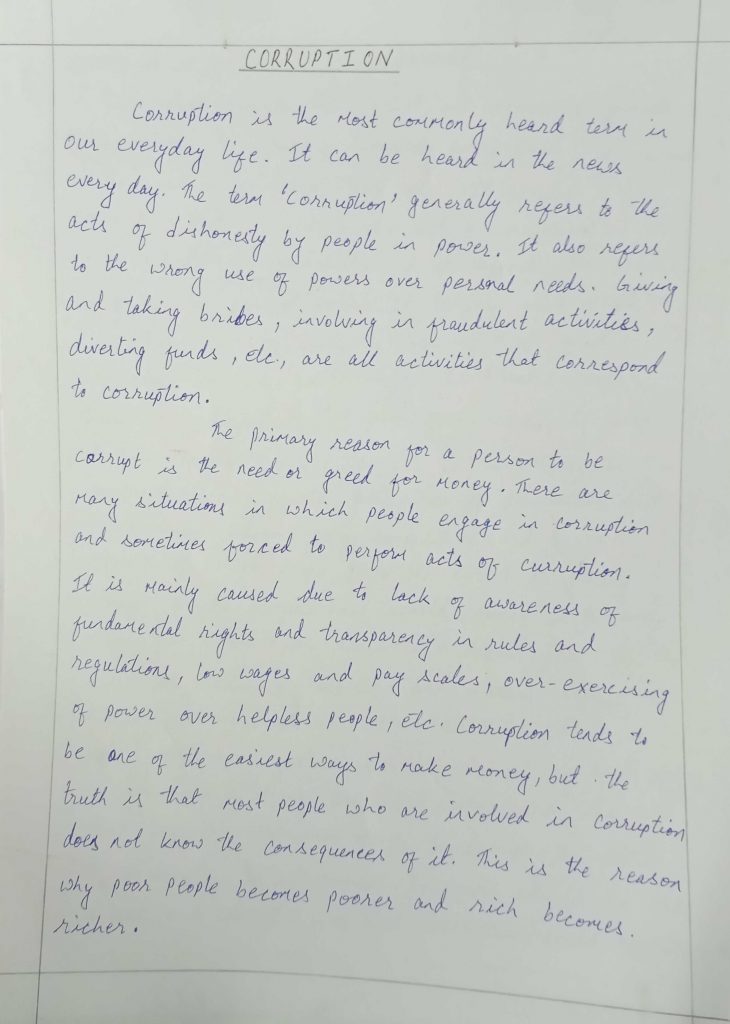 CORRUPTION
Corruption is the most commonly heard term in
our everyday life. It can be heard in the news
every day. The term 'Corruption' generally refers to the
acts of dishonesty by people in power. It also refers
to the wrong use of powers over personal needs. Giving
and taking bribes, involving in fraudulent activities,
diverting funds, etc., are all activities that correspond
to corruption.
The primary reason for a person to be
corrupt is the need or greed for money. There are
many situations in which people engage in corruption
and sometimes forced to perform acts of curruption.
It is mainly caused due to lack of awareness of
fundamental rights and transparency in rules and
regulations, low wages and pay scales, over-exercising
of power over helpless people, etc. Corruption tends to
be one of the easiest ways to make money, but the
truth is that most people who are involved in corruption
does not know the consequences of it. This is the reason
why poor people becomes poorer and rich becomes
richer.